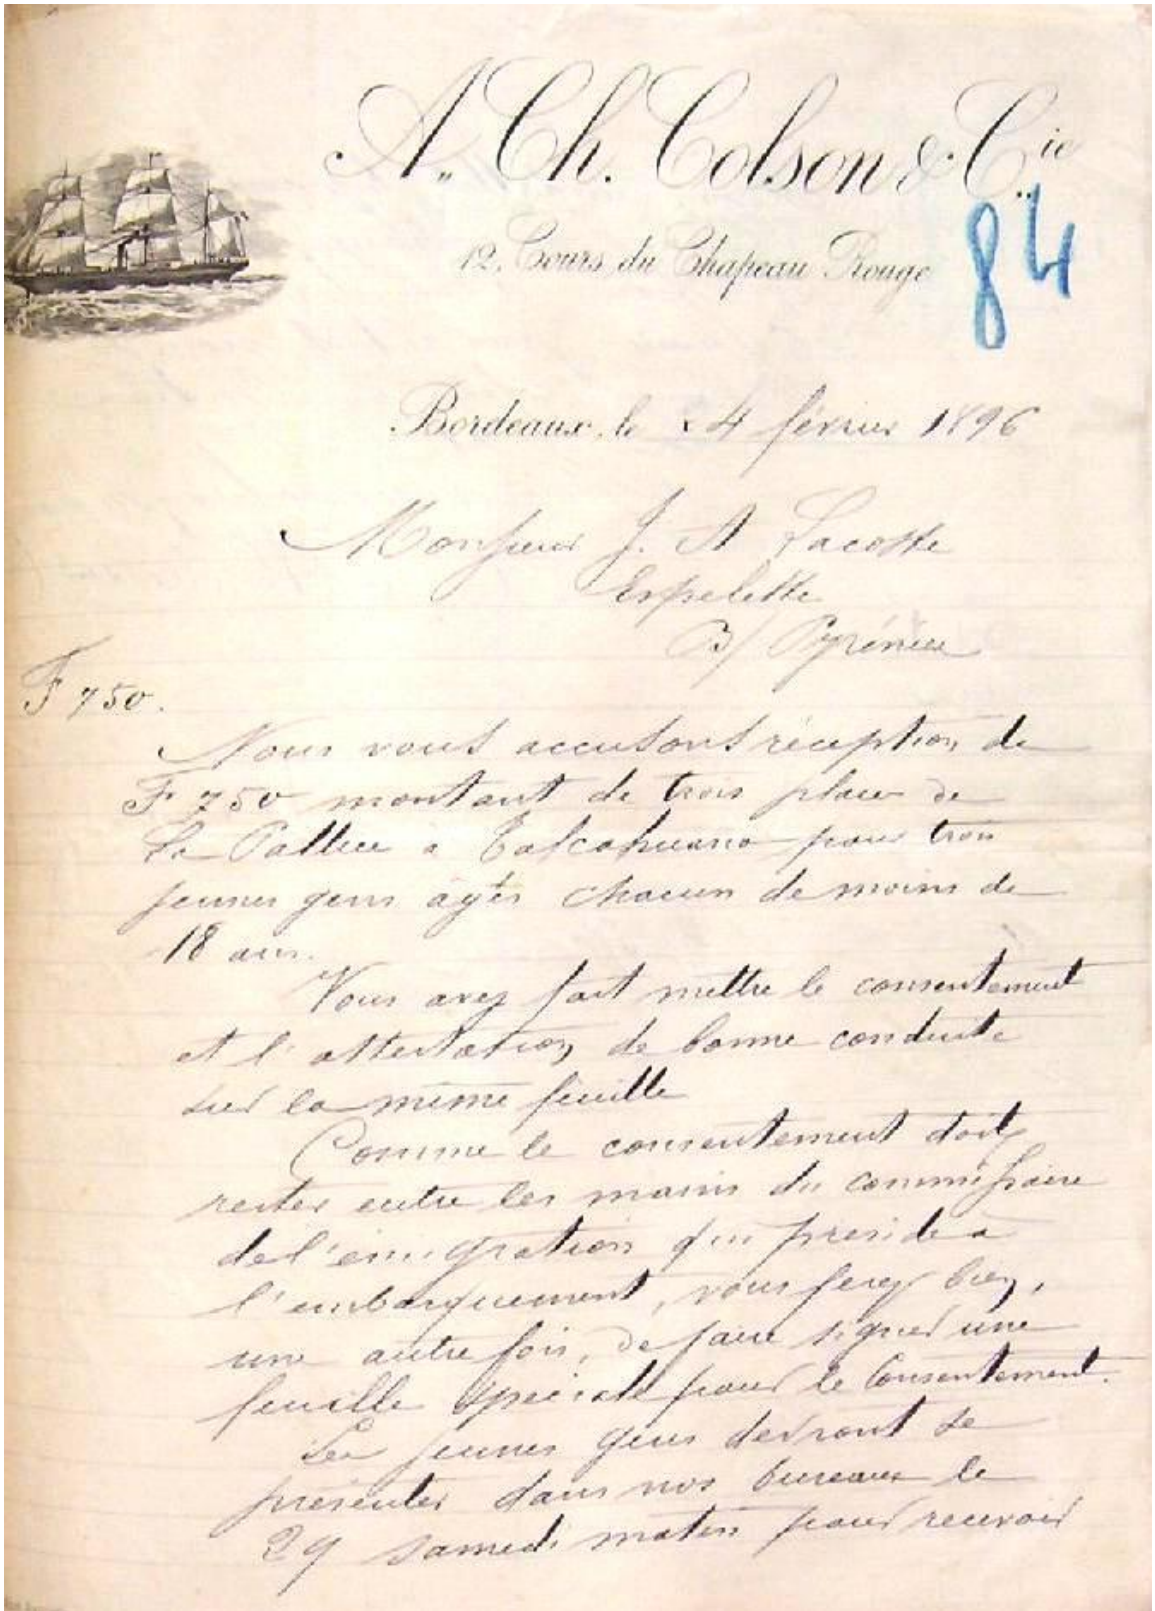 A. Ch. Colson & Cie
12, Cours du Chapeau Rouge
84
Bordeaux, le 24 février 1896
Monsieur J. A Lacoste
Espelette
B/ Pyrénées
F 750.
Nous vous accusons réception de
F 750 montant de trois places de
La Pallice a Talcahuano pour trois
jeunes gens âgés chacun de moins de
18 ans.
Vous avez fait mettre le consentement
et l'attestation de bonne conduite
sur la même feuille
Comme le consentement doit
rester entre les mains du commissaire
de l'émigration qui préside à
l'embarquement, vous ferez bien,
une autre fois, de faire signer une
feuille spéciale pour le consentement.
Les jeunes gens devront se
présenter dans nos bureaux le
29 samedi matin pour recevoir